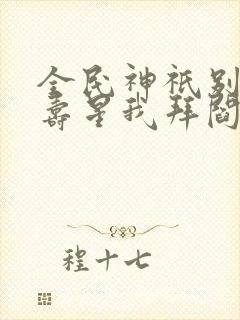 全民神祇别
寿星我拜阎
程十七